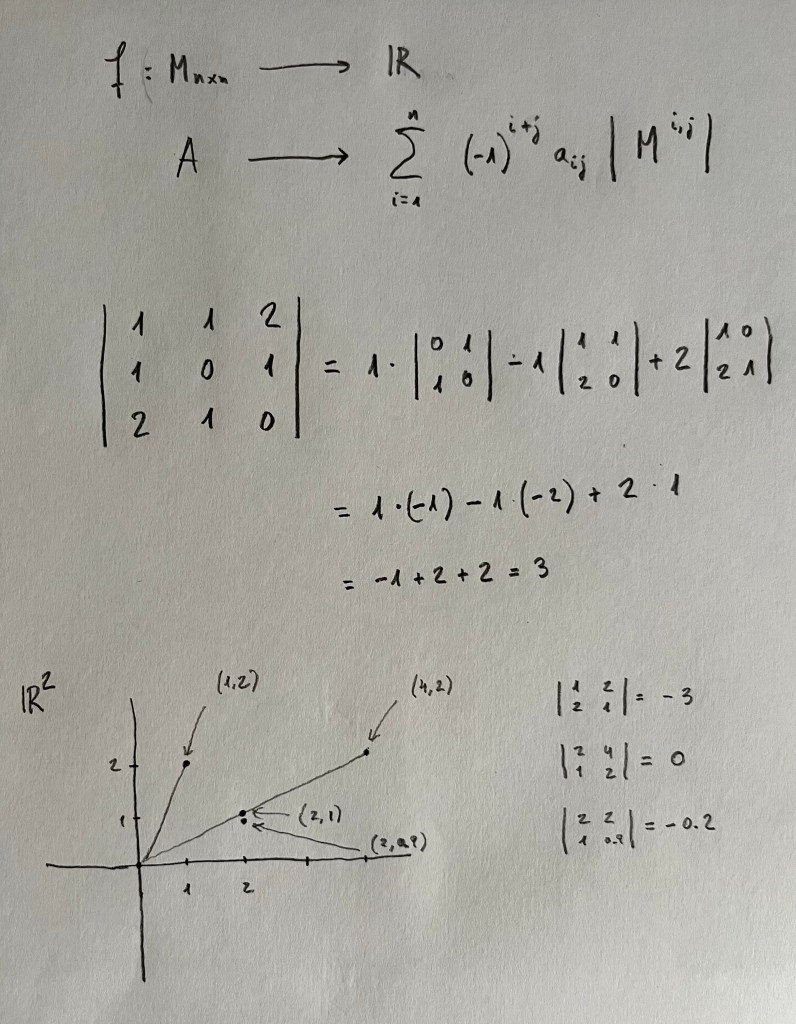 f : Mₙₓₙ ⟶ ℝ
A ⟶ ∑ᵢ₌₁ⁿ (-1)ⁱ⁺ʲ aᵢⱼ | Mⁱ'ʲ |
| 1 1 2 |
| 1 0 1 | = 1· | 0 1 ; 1 0 | - 1 | 1 1 ; 2 0 | + 2 | 1 0 ; 2 1 |
| 2 1 0 |
= 1·(-1) - 1·(-2) + 2 · 1
= -1 + 2 + 2 = 3
ℝ²
(1,2)
(4,2)
2
1
(2,1)
(2,0.9)
1 2
| 1 2 ; 2 1 | = -3
| 2 4 ; 1 2 | = 0
| 2 2 ; 1 0.9 | = -0.2